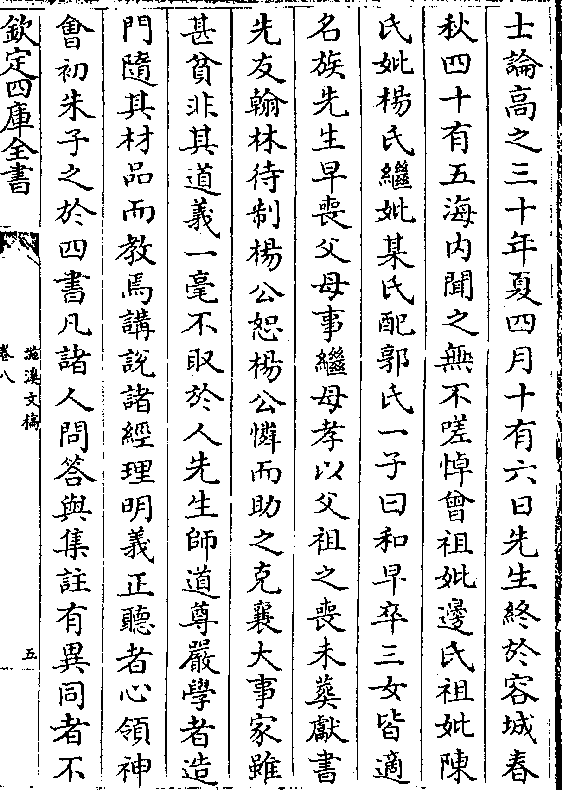 士論高之三十年夏四月十有六日先生終於容城春
秋四十有五海内聞之無不嗟悼曾祖妣邊氏祖妣陳
氏妣楊氏繼妣某氏配郭氏一子曰和早卒三女皆適
名族先生早喪父母事繼母孝以父祖之喪未葬獻書
先友翰林待制楊公恕楊公憐而助之克襄大事家雖
甚貧非其道義一毫不取於人先生師道尊嚴學者造
門隨其材品而教焉講説諸經理明義正聽者心領神
㑹初朱子之於四書凡諸人問答與集註有異同者不
欽定四庫全書
滋溪文稿
卷八
五